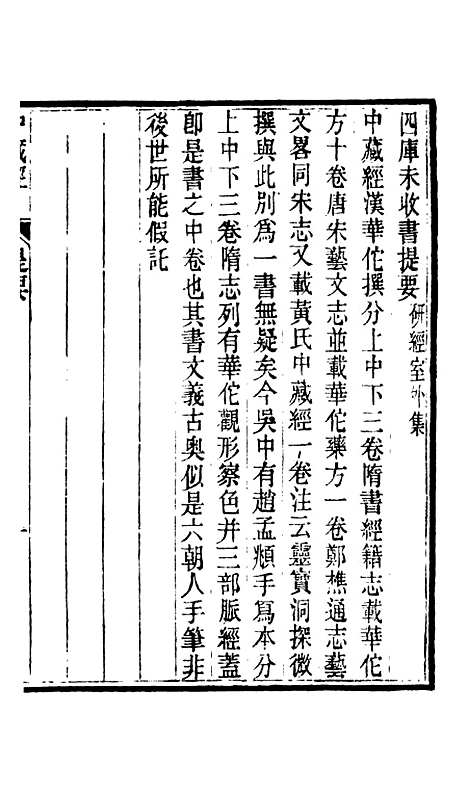 四庫未收書提要 研經室外集
中藏經漢華佗撰分上中下三卷隋書經籍志載華佗
方十卷唐宋藝文志並載華佗藥方一卷鄭樵通志藝
文畧同宋志又載黃氏中藏經一卷注云靈寶洞探微
撰與此別為一書無疑矣今吳中有趙孟頫手寫本分
上中下三卷隋志列有華佗觀形察色并三部脈經蓋
卽是書之中卷也其書文義古奧似是六朝人手筆非
後世所能假託
中藏經 提要 一